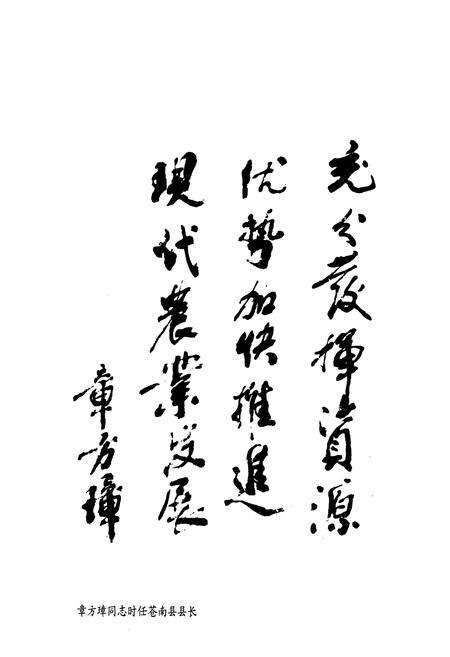 充分發揮資源
优势加快推進
現代農業发展
章方璋
章方璋同志时任苍南县县长